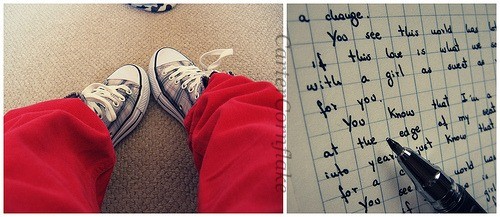 CarterCornflake
a change.
You see this world has
If this love is what we
with a girl as sweet as
for you.
You know that I'm a
at the edge of my seat
into year just know that
for a c
You see world